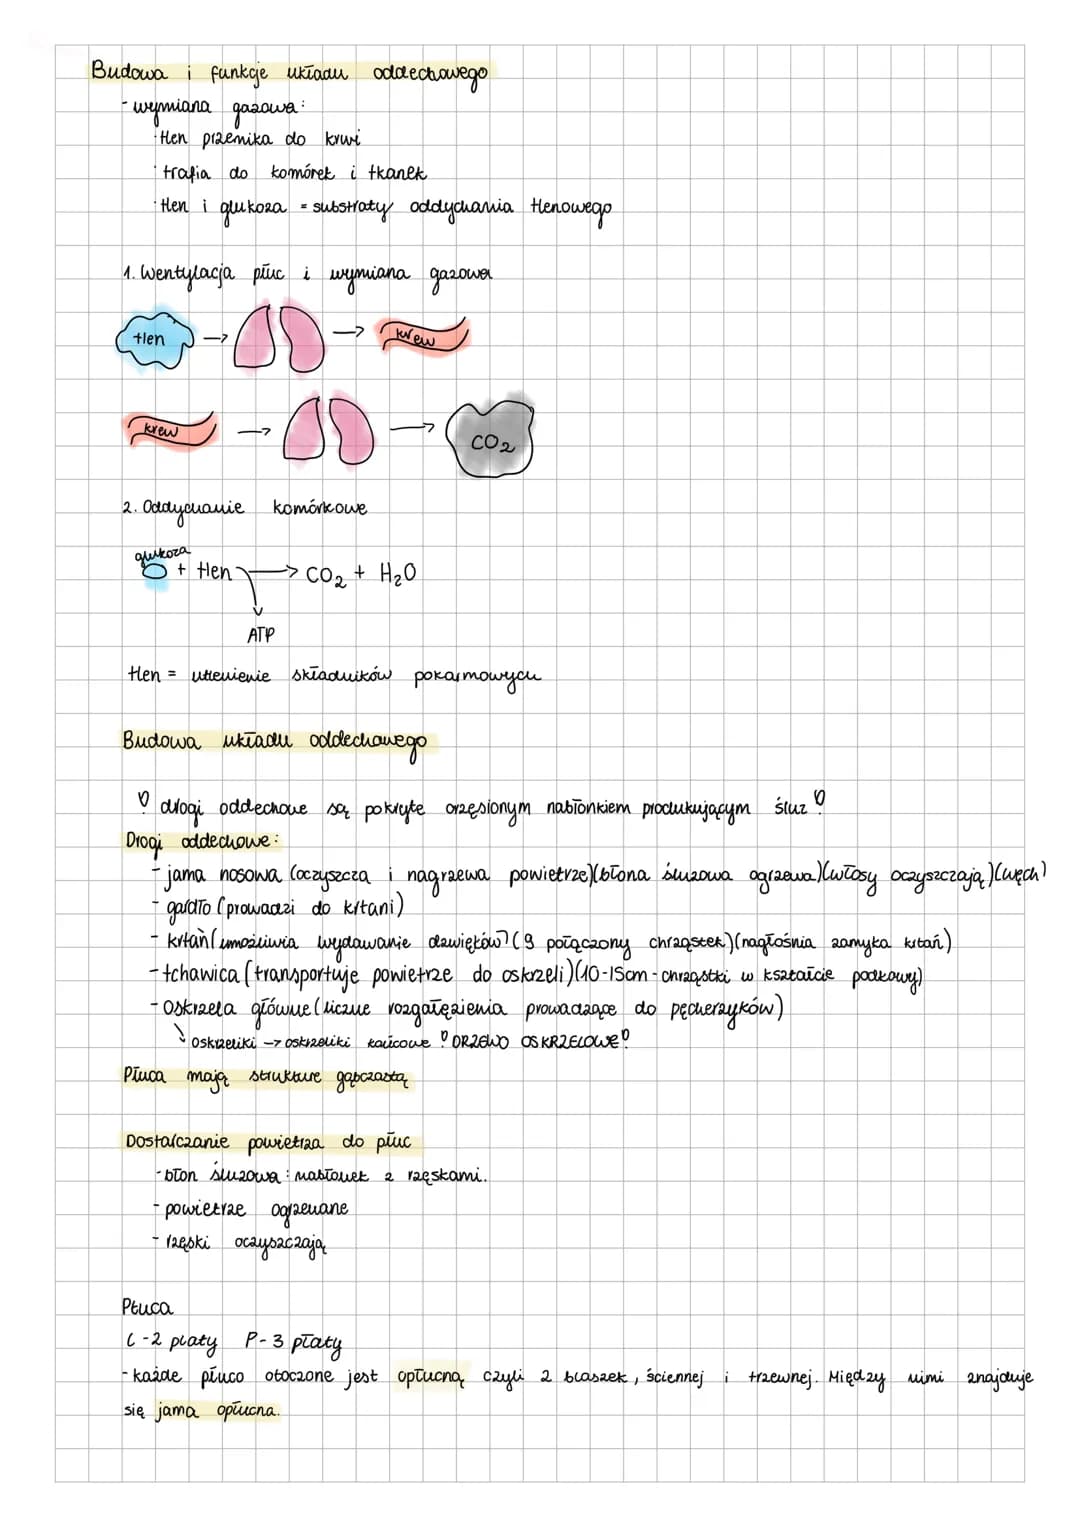 Budowa i funkcje układu oddechowego
- wymiana gazowa:
· tlen przenika do krwi
· trafia do komórek i tkanek
· tlen i glukoza = substraty oddychania tlenowego
1. Wentylacja płuc i wymiana gazowa
tlen → → krew
krew → → CO2
2. Oddychanie komórkowe
glukoza
+ tlen → CO2 + H2O
ATP
tlen = utlenienie składników pokarmowych
Budowa układu oddechowego
! drogi oddechowe są pokryte orzęsionym nabłonkiem produkującym śluz !
Drogi oddechowe:
- jama nosowa (oczyszcza i nagrzewa powietrze)(błona śluzowa ogrzewa)(włosy oczyszczają)(węch)
- gardło (prowadzi do krtani)
- krtań (umożliwia wydawanie dźwięków) (9 połączony chrząstek)(nagłośnia zamyka krtań)
- tchawica (transportuje powietrze do oskrzeli)(10-15cm - chrząstki w kształcie podkowy)
- Oskrzela główne (liczne rozgałęzienia prowadzące do pęcherzyków)
↘ oskrzeliki → oskrzeliki końcowe ! DRZEWO OSKRZELOWE !
Płuca mają strukture gąbczastą
Dostarczanie powietrza do płuc
- błon śluzowa : nabłonek z rzęskami.
- powietrze ogrzewane
- rzęski oczyszczają
Płuca
L - 2 płaty P - 3 płaty
- każde płuco otoczone jest opłucną czyli 2 blaszek, ściennej i trzewnej. Między nimi znajduje
się jama opłucna.